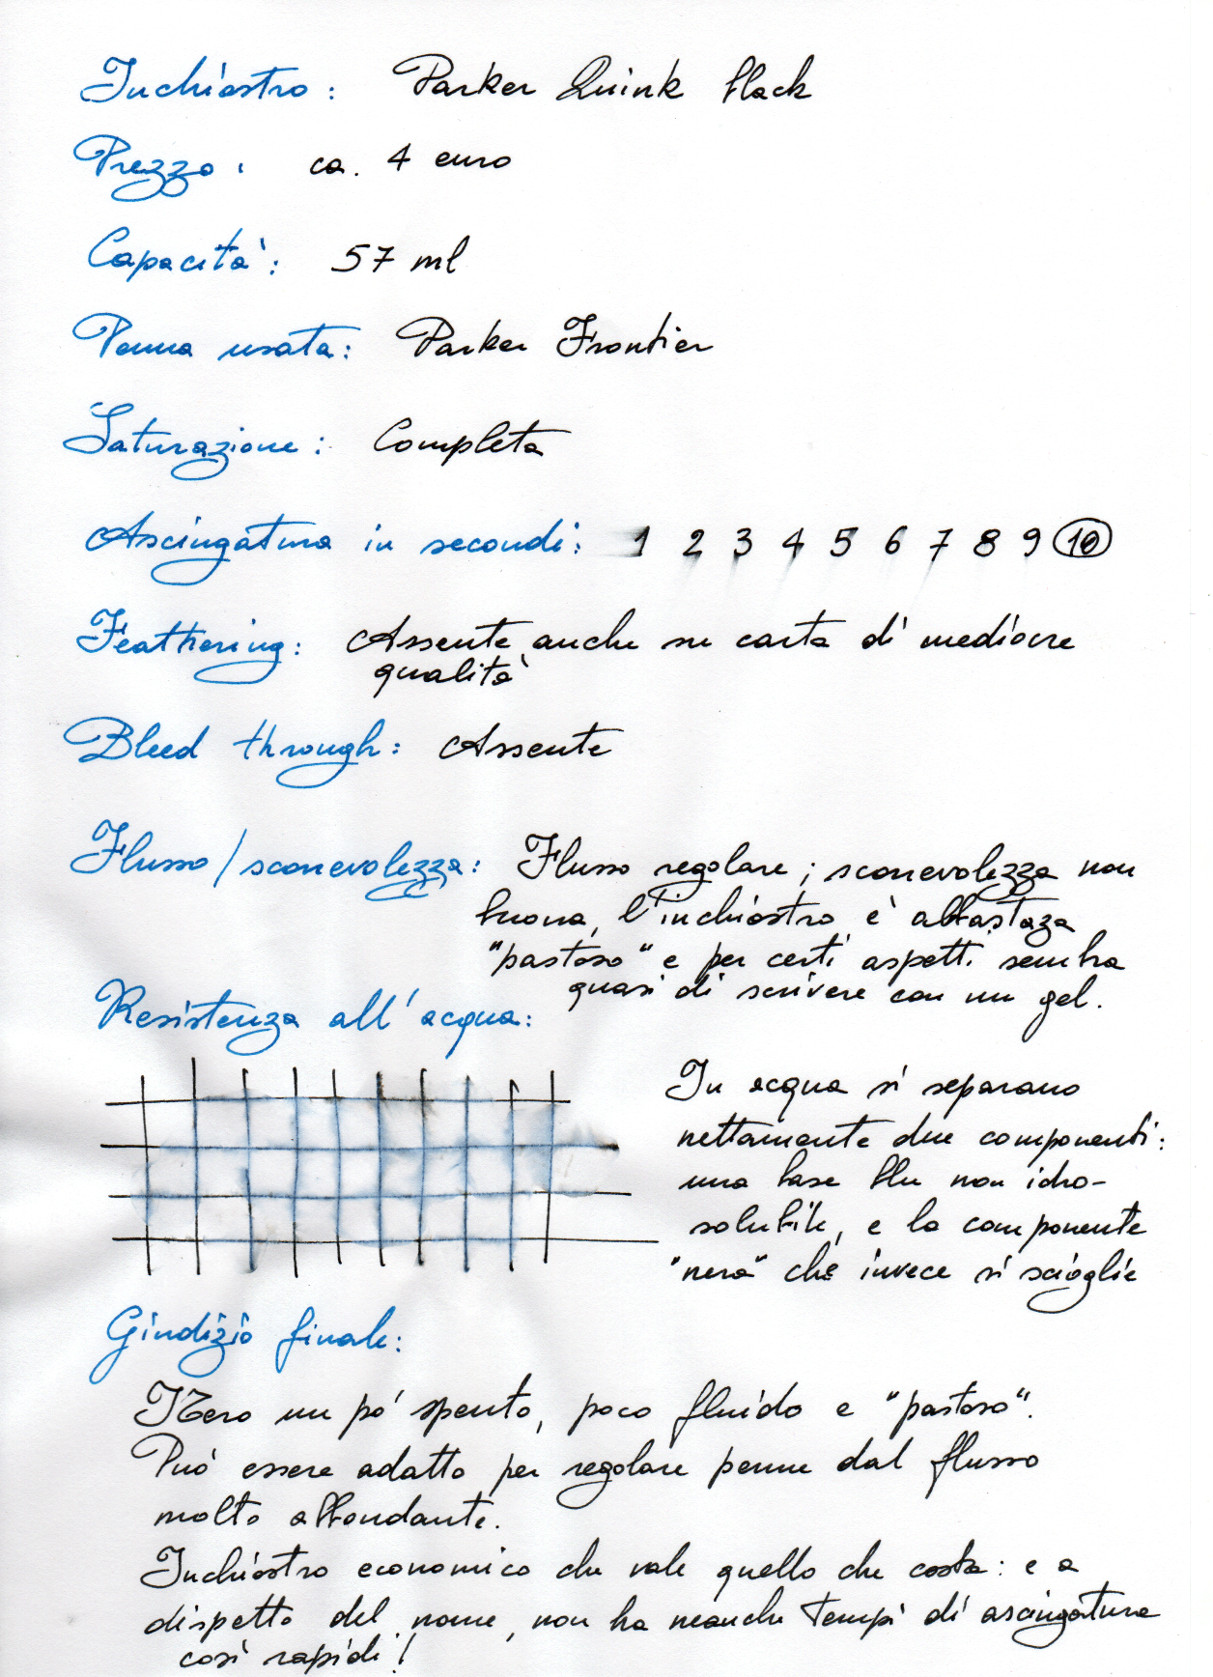 Inchiostro: Parker Quink black
Prezzo: ca. 4 euro
Capacità: 57 ml
Penna usata: Parker Frontier
Saturazione: Completa
Asciugatura in secondi: 1 2 3 4 5 6 7 8 9 10
Feathering: Assente anche su carta di mediocre
qualità
Bleed through: Assente
Flusso/scorrevolezza: Flusso regolare; scorrevolezza non
buona, l'inchiostro è abbastaza
"pastoso" e per certi aspetti sembra
quasi di scrivere con un gel.
Resistenza all'acqua:
In acqua si separano
nettamente due componenti:
una base blu non idro-
solubile, e la componente
"nera" che invece si scioglie
Giudizio finale:
Nero un pò spento, poco fluido e "pastoso".
Può essere adatto per regolare penne dal flusso
molto abbondante.
Inchiostro economico che vale quello che costa: e a
dispetto del nome, non ha neanche tempi di asciugatura
così rapidi!